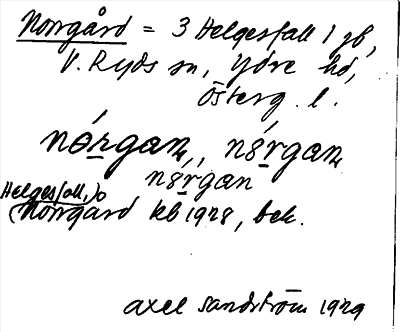 Norrgård = 3 Helgesfall 1 gb,
V. Ryds sn, Ydre hd,
Österg. l.
nórgan, nórgan
nórgan
Helgesfall,
(Norrgård kb 1928, bek.
Axel Sandström 1929